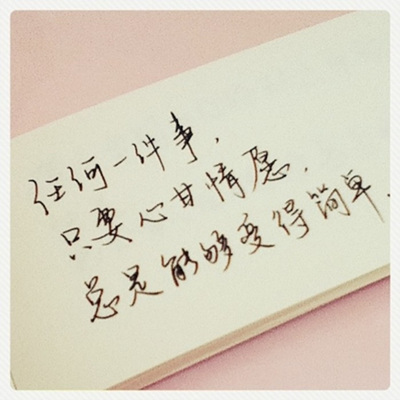 任何一件事，
只要心甘情愿．
总是能够变得简单．